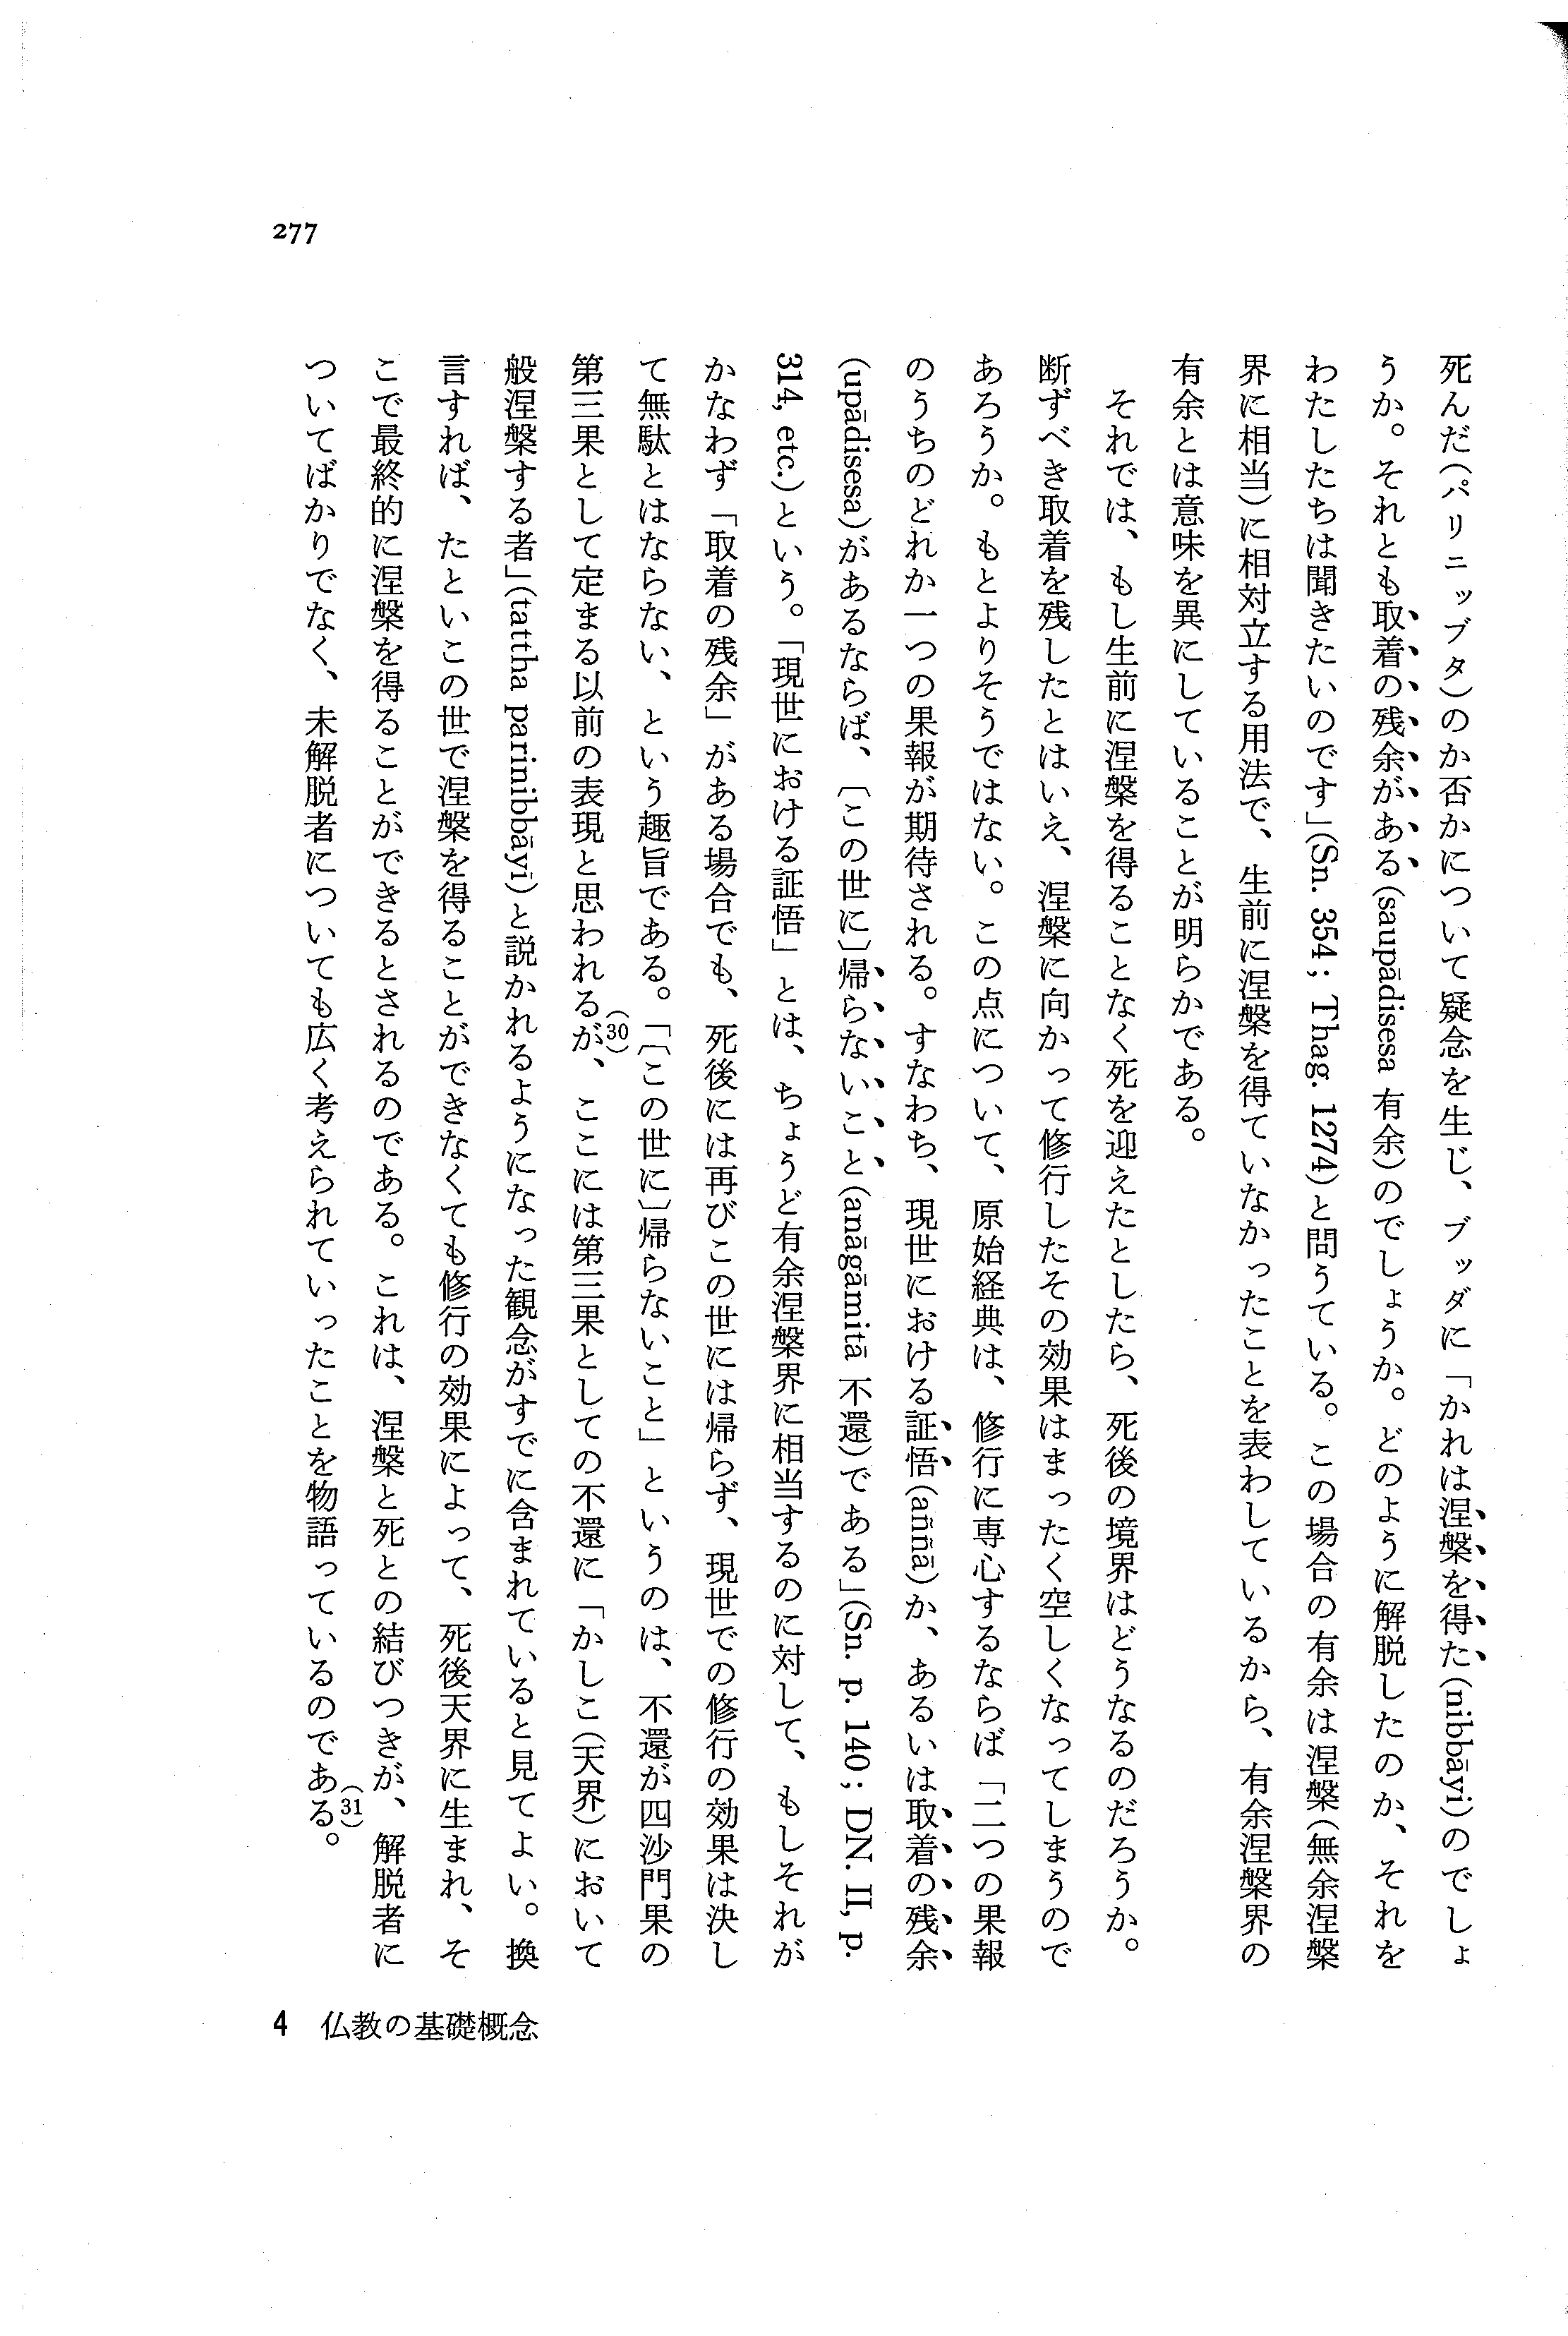 277
死んだ(パリニッブタ)のか否かについて疑念を生じ、ブッダに「かれは涅槃を得た(nibbāyi)のでしょ
うか。それとも取着の残余がある(saupādisesa 有余)のでしょうか。どのように解脱したのか、それを
わたしたちは聞きたいのです」(Sn. 354; Thag. 1274)と問うている。この場合の有余は涅槃(無余涅槃
界に相当)に相対立する用法で、生前に涅槃を得ていなかったことを表わしているから、有余涅槃界の
有余とは意味を異にしていることが明らかである。
それでは、もし生前に涅槃を得ることなく死を迎えたとしたら、死後の境界はどうなるのだろうか。
断ずべき取着を残したとはいえ、涅槃に向かって修行したその効果はまったく空しくなってしまうので
あろうか。もとよりそうではない。この点について、原始経典は、修行に専心するならば「二つの果報
のうちのどれか一つの果報が期待される。すなわち、現世における証悟(aññā)か、あるいは取着の残余
(upādisesa)があるならば、〔この世に〕帰らないこと(anāgāmitā 不還)である」(Sn. p. 140; DN. II, p.
314, etc.)という。「現世における証悟」とは、ちょうど有余涅槃界に相当するのに対して、もしそれが
かなわず「取着の残余」がある場合でも、死後には再びこの世には帰らず、現世での修行の効果は決し
て無駄とはならない、という趣旨である。「〔この世に〕帰らないこと」というのは、不還が四沙門果の
第三果として定まる以前の表現と思われるが(30)、ここには第三果としての不還に「かしこ(天界)において
般涅槃する者」(tattha parinibbāyī)と説かれるようになった観念がすでに含まれていると見てよい。換
言すれば、たといこの世で涅槃を得ることができなくても修行の効果によって、死後天界に生まれ、そ
こで最終的に涅槃を得ることができるとされるのである。これは、涅槃と死との結びつきが、解脱者に
ついてばかりでなく、未解脱者についても広く考えられていったことを物語っているのである(31)。
4 仏教の基礎概念